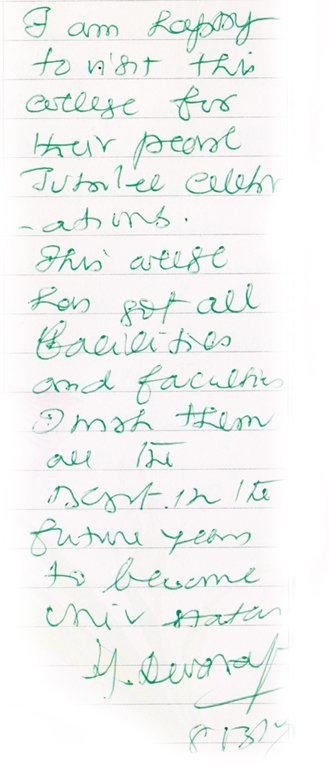 I am happy
to visit this
college for
their pearl
Jubilee celebr
-ations.
This college
has got all
facilities
and faculties
I wish them
all the
best in the
future years
to become
univ status